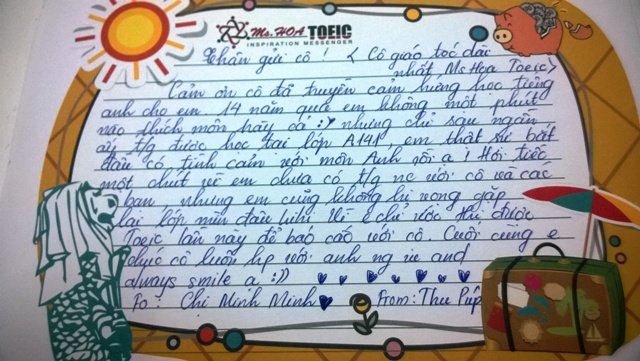 Ms.HOA TOEIC
INSPIRATION MESSENGER
Thân gửi cô ! < Cô giáo tóc dài
nhất, Ms Hoa Toeic>
Cảm ơn cô đã truyền cảm hứng học tiếng
anh cho em. 14 năm qua em không một phút
nào thích môn này cả :)) nhưng chỉ sau ngần
ấy t/g được học tại lớp A141, em thật sự bắt
đầu có tình cảm với môn Anh rồi ạ ! Hơi tiếc
một chút vì em chưa có t/g nc với cô và các
bạn, nhưng em cũng không hi vọng gặp
lại lớp mình đâu hihi. Vì e chỉ ước thi được
Toeic lần này để báo cáo với cô. Cuối cùng e
chúc cô luôn hp với anh ng iu and
always smile ạ :))
To : Chị Minh Minh From: Thu Púp